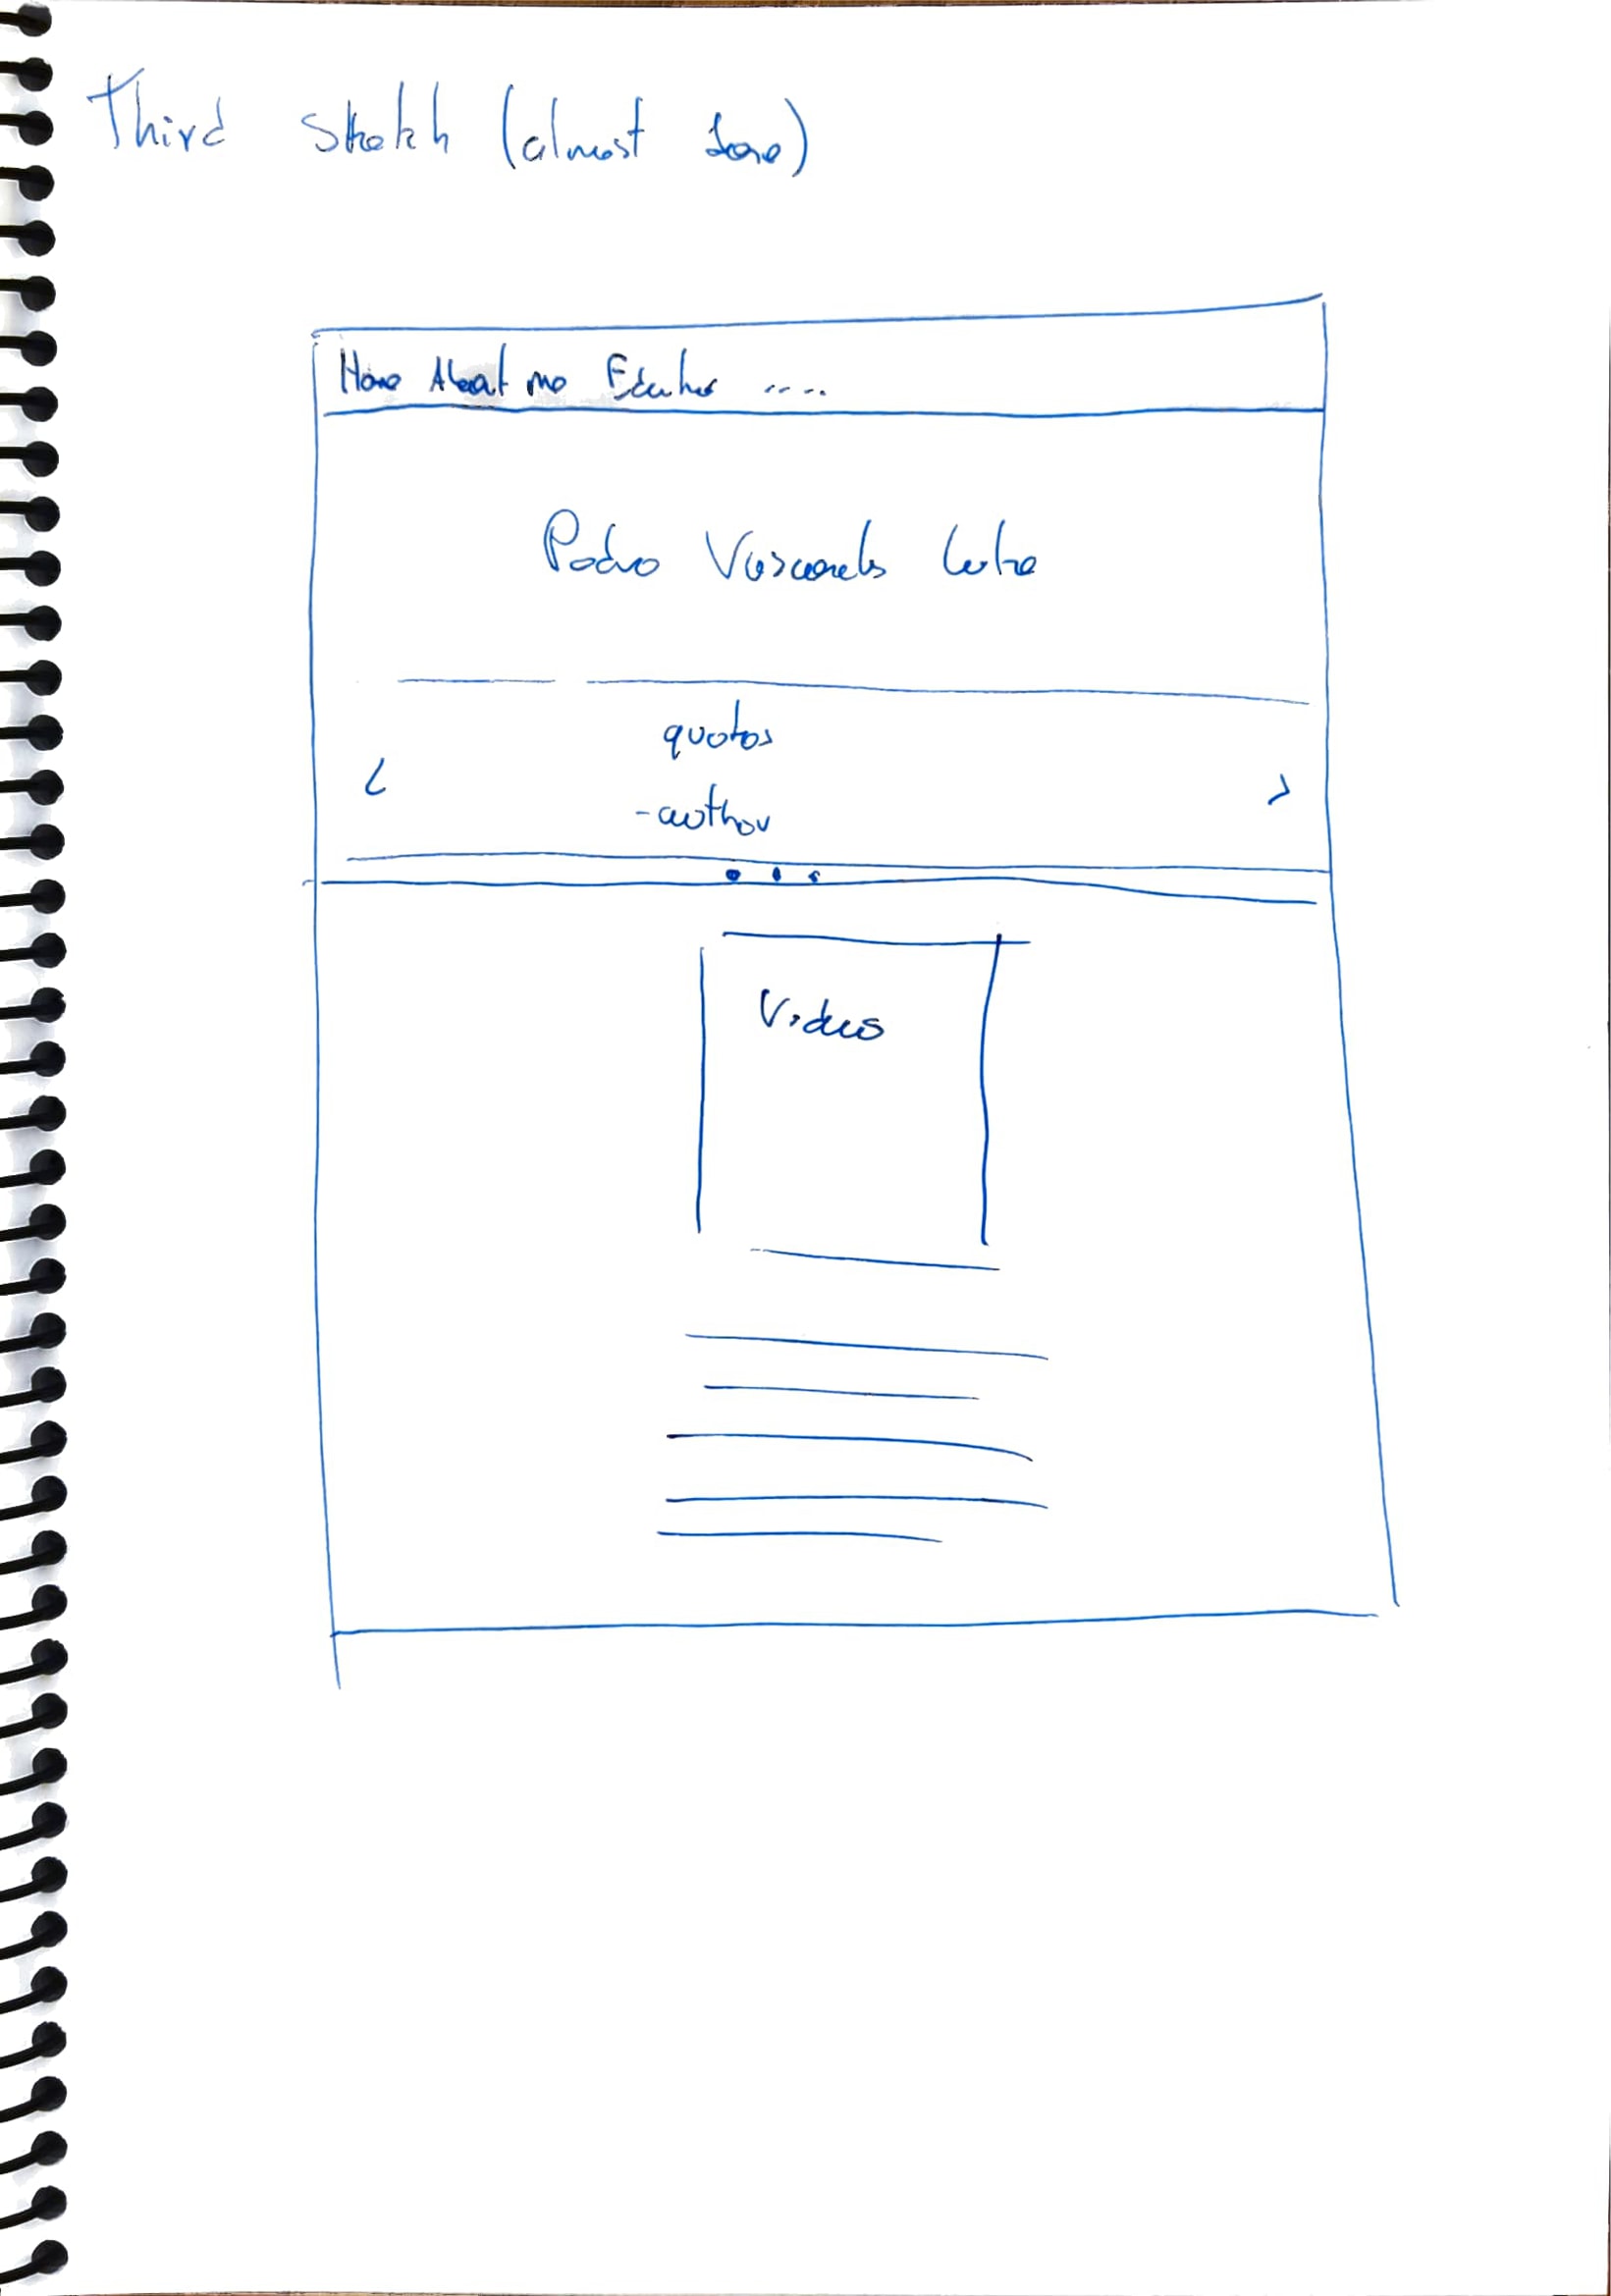 Third Sketch (almost done)
Home About me Education ....
Pedro Vasconcelos
<
quotes
>
-author
Video